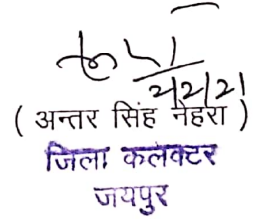 2/2/21
( अन्तर सिंह नेहरा )
जिला कलक्टर
जयपुर